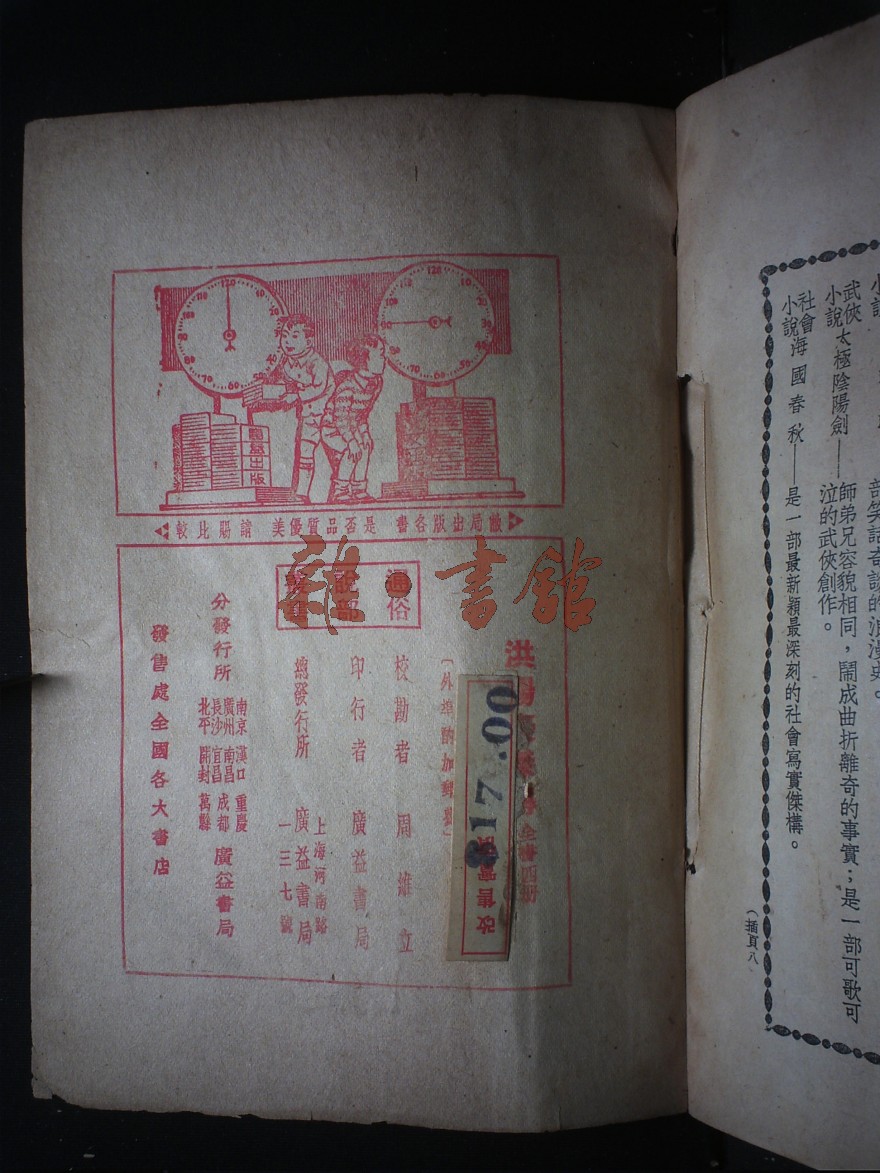 武俠小說 太極陰陽劍——師弟兄容貌相同，鬧成曲折離奇的事實；是一部可歌可
泣的武俠創作。
社會小說 海國春秋——是一部最新穎最深刻的社會寫實傑構。
（插頁八
廣益出版
敝局出版各書 是否品質優美 請賜比較
通俗
說部
洪
全書四冊
（外埠酌加郵費）
$17.00
改售實
校勘者 周維立
印行者 廣益書局
總發行所 上海河南路一三七號 廣益書局
分發行所 南京 漢口 重慶 廣州 南昌 成都 長沙 宜昌 北平 開封 萬縣 廣益書局
發售處全國各大書店
雜·書館